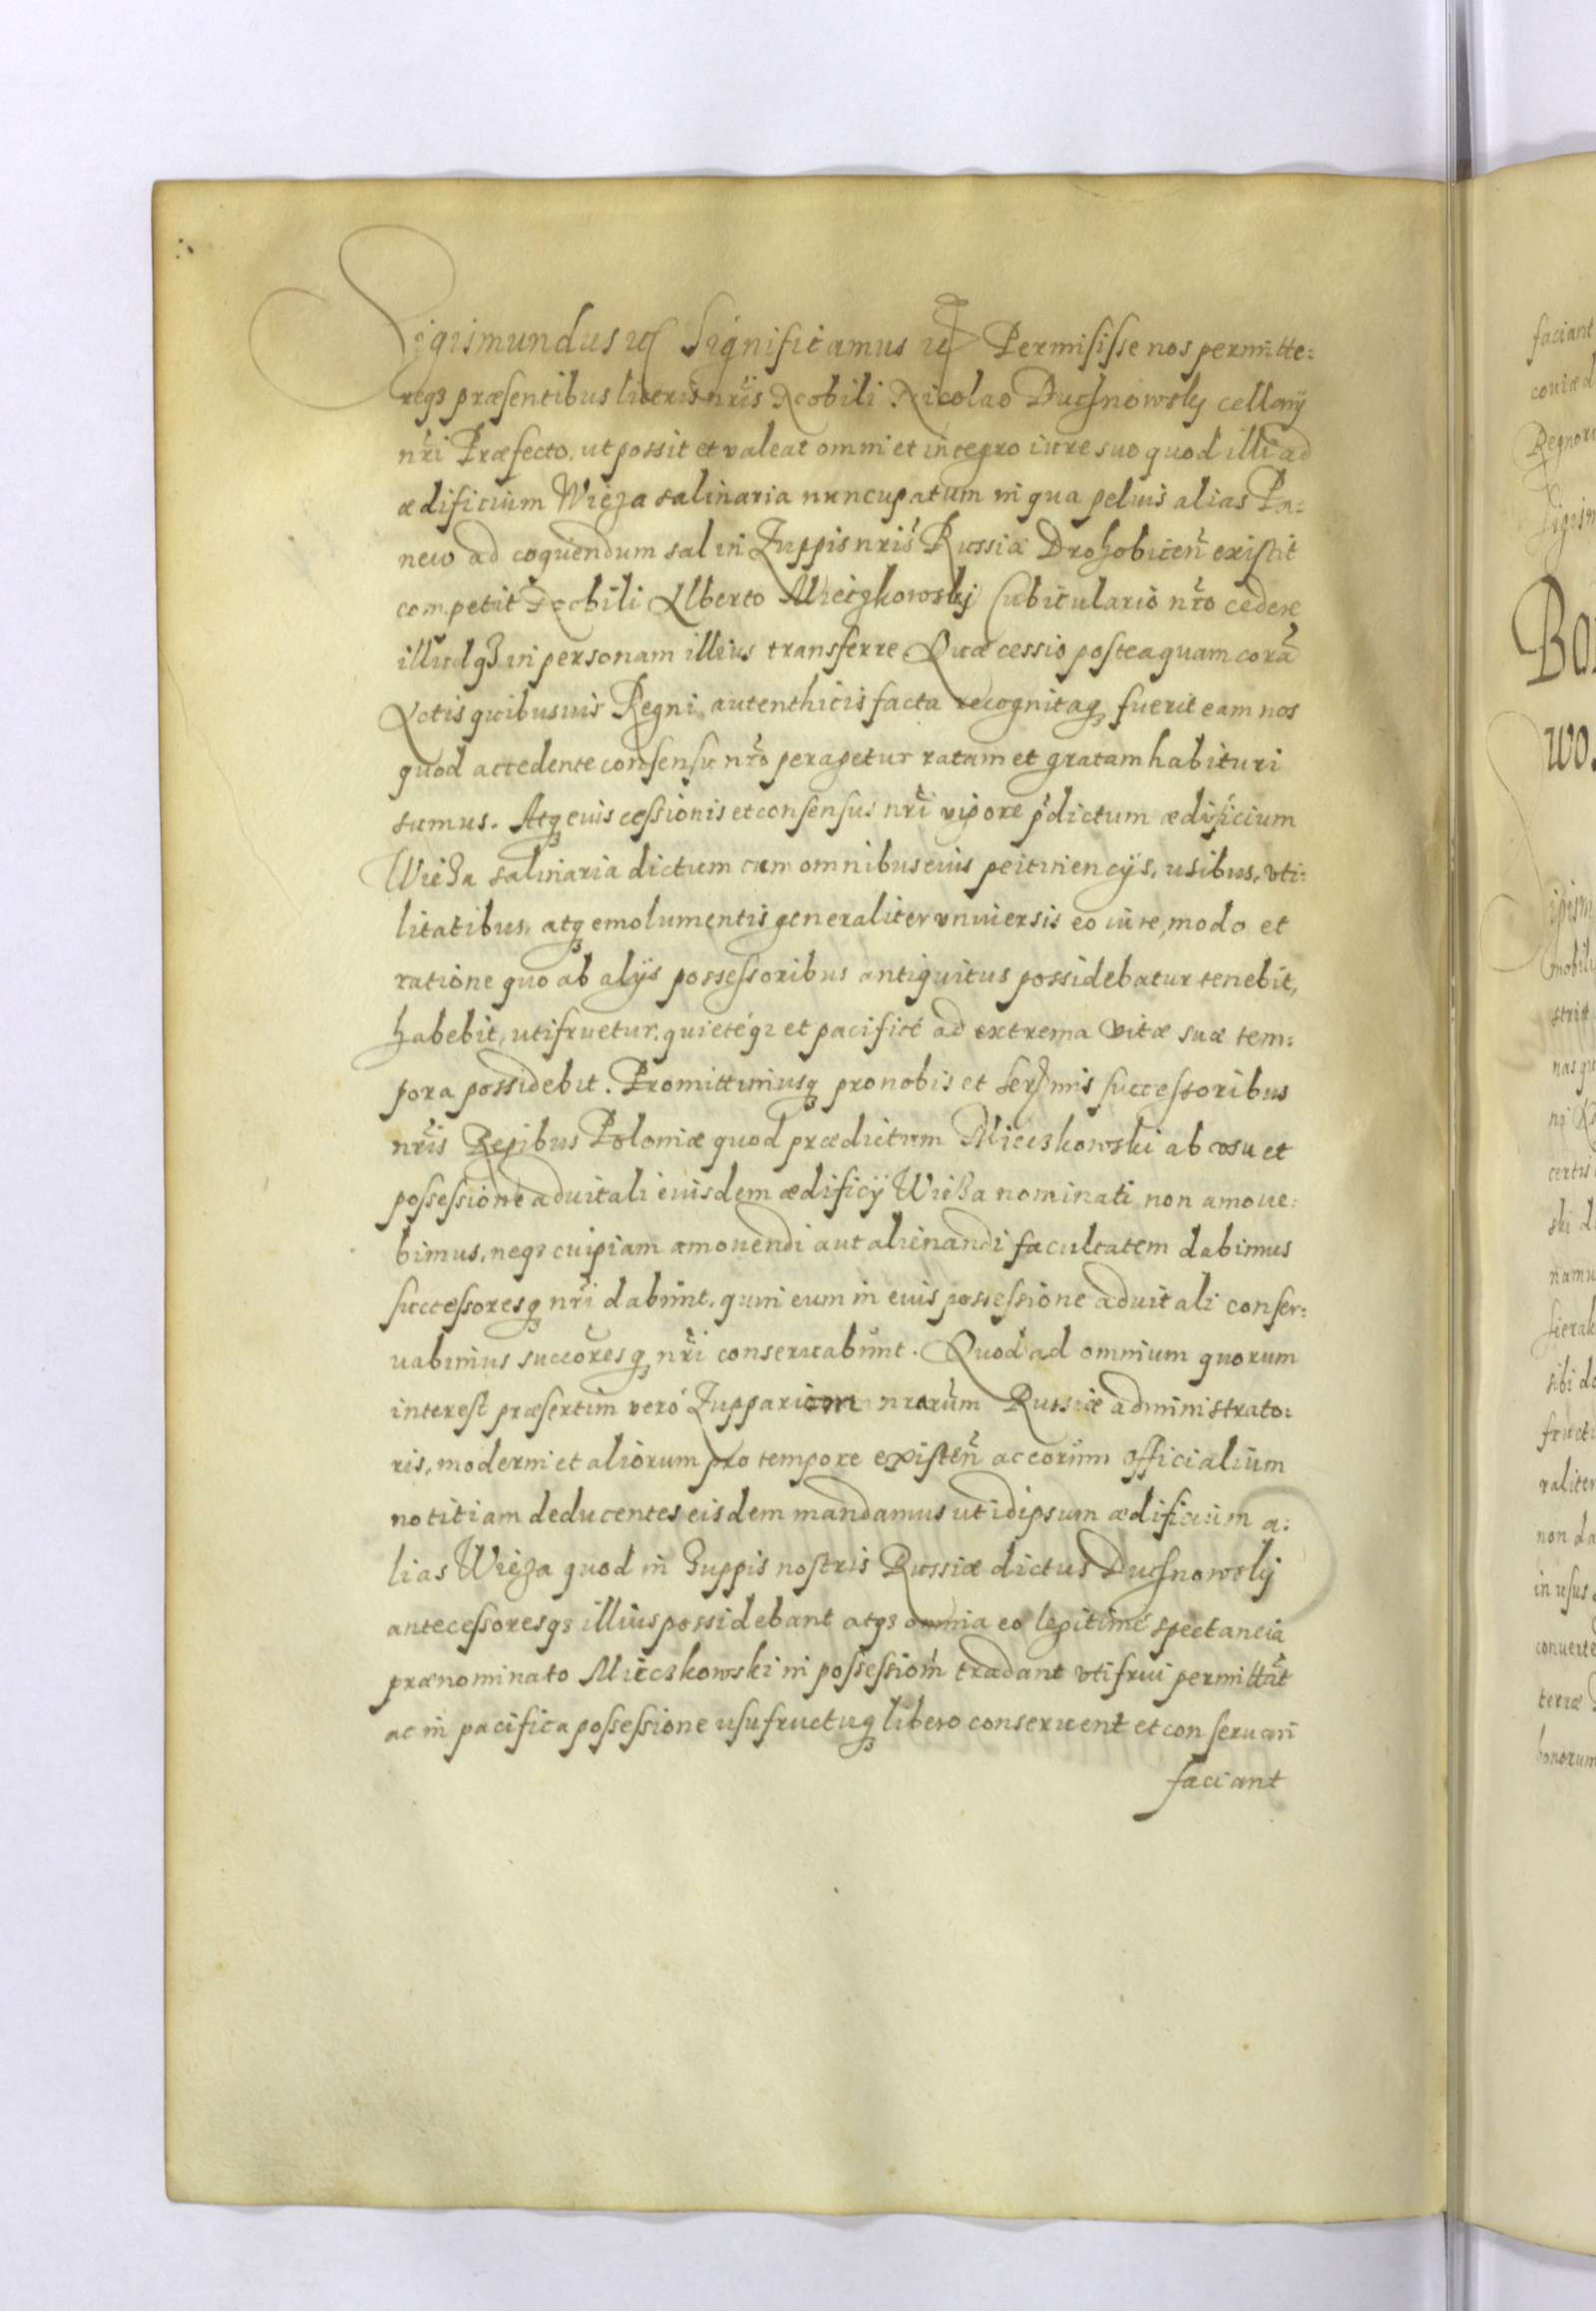 Sigismundus etc Significamus etc Permisisse nos permitte:
reqз præsentibus literis nr̃is Nobili Nicolao Duchnowsky cellarÿ
nr̃i Præfecto, ut possit et valeat omni et integro iure suo quod illi ad
ædificium Wieza salinaria nuncupatum in qua peluis alias Pa:
new ad coquendum sal in Zuppis nris̃ Russiæ Drohobiceñ existit
competit Nobili Alberto Mieczkowskj Cubiculario nr̃o cedere
illudqз in personam illius transferre Quæ cessio posteaquam corã
Actis quibusuis Regni autenthicis facta recognitaqз fuerit eam nos
quod accedente consensu nr̃o peragetur ratam et gratam habituri
sumus. Atqз euis cessionis et consensus nr̃i vigore p̃dictum ædificium
Wieza salinaria dictum cum omnibus eius pertinencÿs, usibus, vti:
litatibus, atqз emolumentis generaliter vniuersis eo iure, modo et
ratione quo ab alÿs possessoribus antiquitus possidebatur tenebit,
habebit, utifruetur, quieteqз et pacifice ad extrema vitæ suæ tem:
pora possidebit. Promittimusqз pro nobis et Serenmis successoribus
nr̃is Regibus Poloniæ quod prædictum Mieczkowski ab vsu et
possessione aduitali eiusdem ædificÿ Wieza nominati non amoue:
bimus, neqз cuipiam amouendi aut alienandi facultatem dabimus
successoresqз nr̃i dabunt, quin eum in eius possessione aduitali conser:
uabimus succõresqз nr̃i conseruabunt. Quod ad omnium quorum
interest præsertim verò Zupparum nrarũm Russiæ administrato:
ris, moderni et aliorum pro tempore existeñ ac eorum officialium
notitiam deducentes eisdem mandamus ut idipsum ædificium a:
lias Wieza quod in Zuppis nostris Russiæ dictus Duchnowsky
antecessoresqз illius possidebant atqз omnia eo legitimè spectancia
prænominato Mieczkowski in possessiom̃ tradant vtifrui permittãt
ac in pacifica possessione usufructuqз libero conseruent et conseruari
faciant